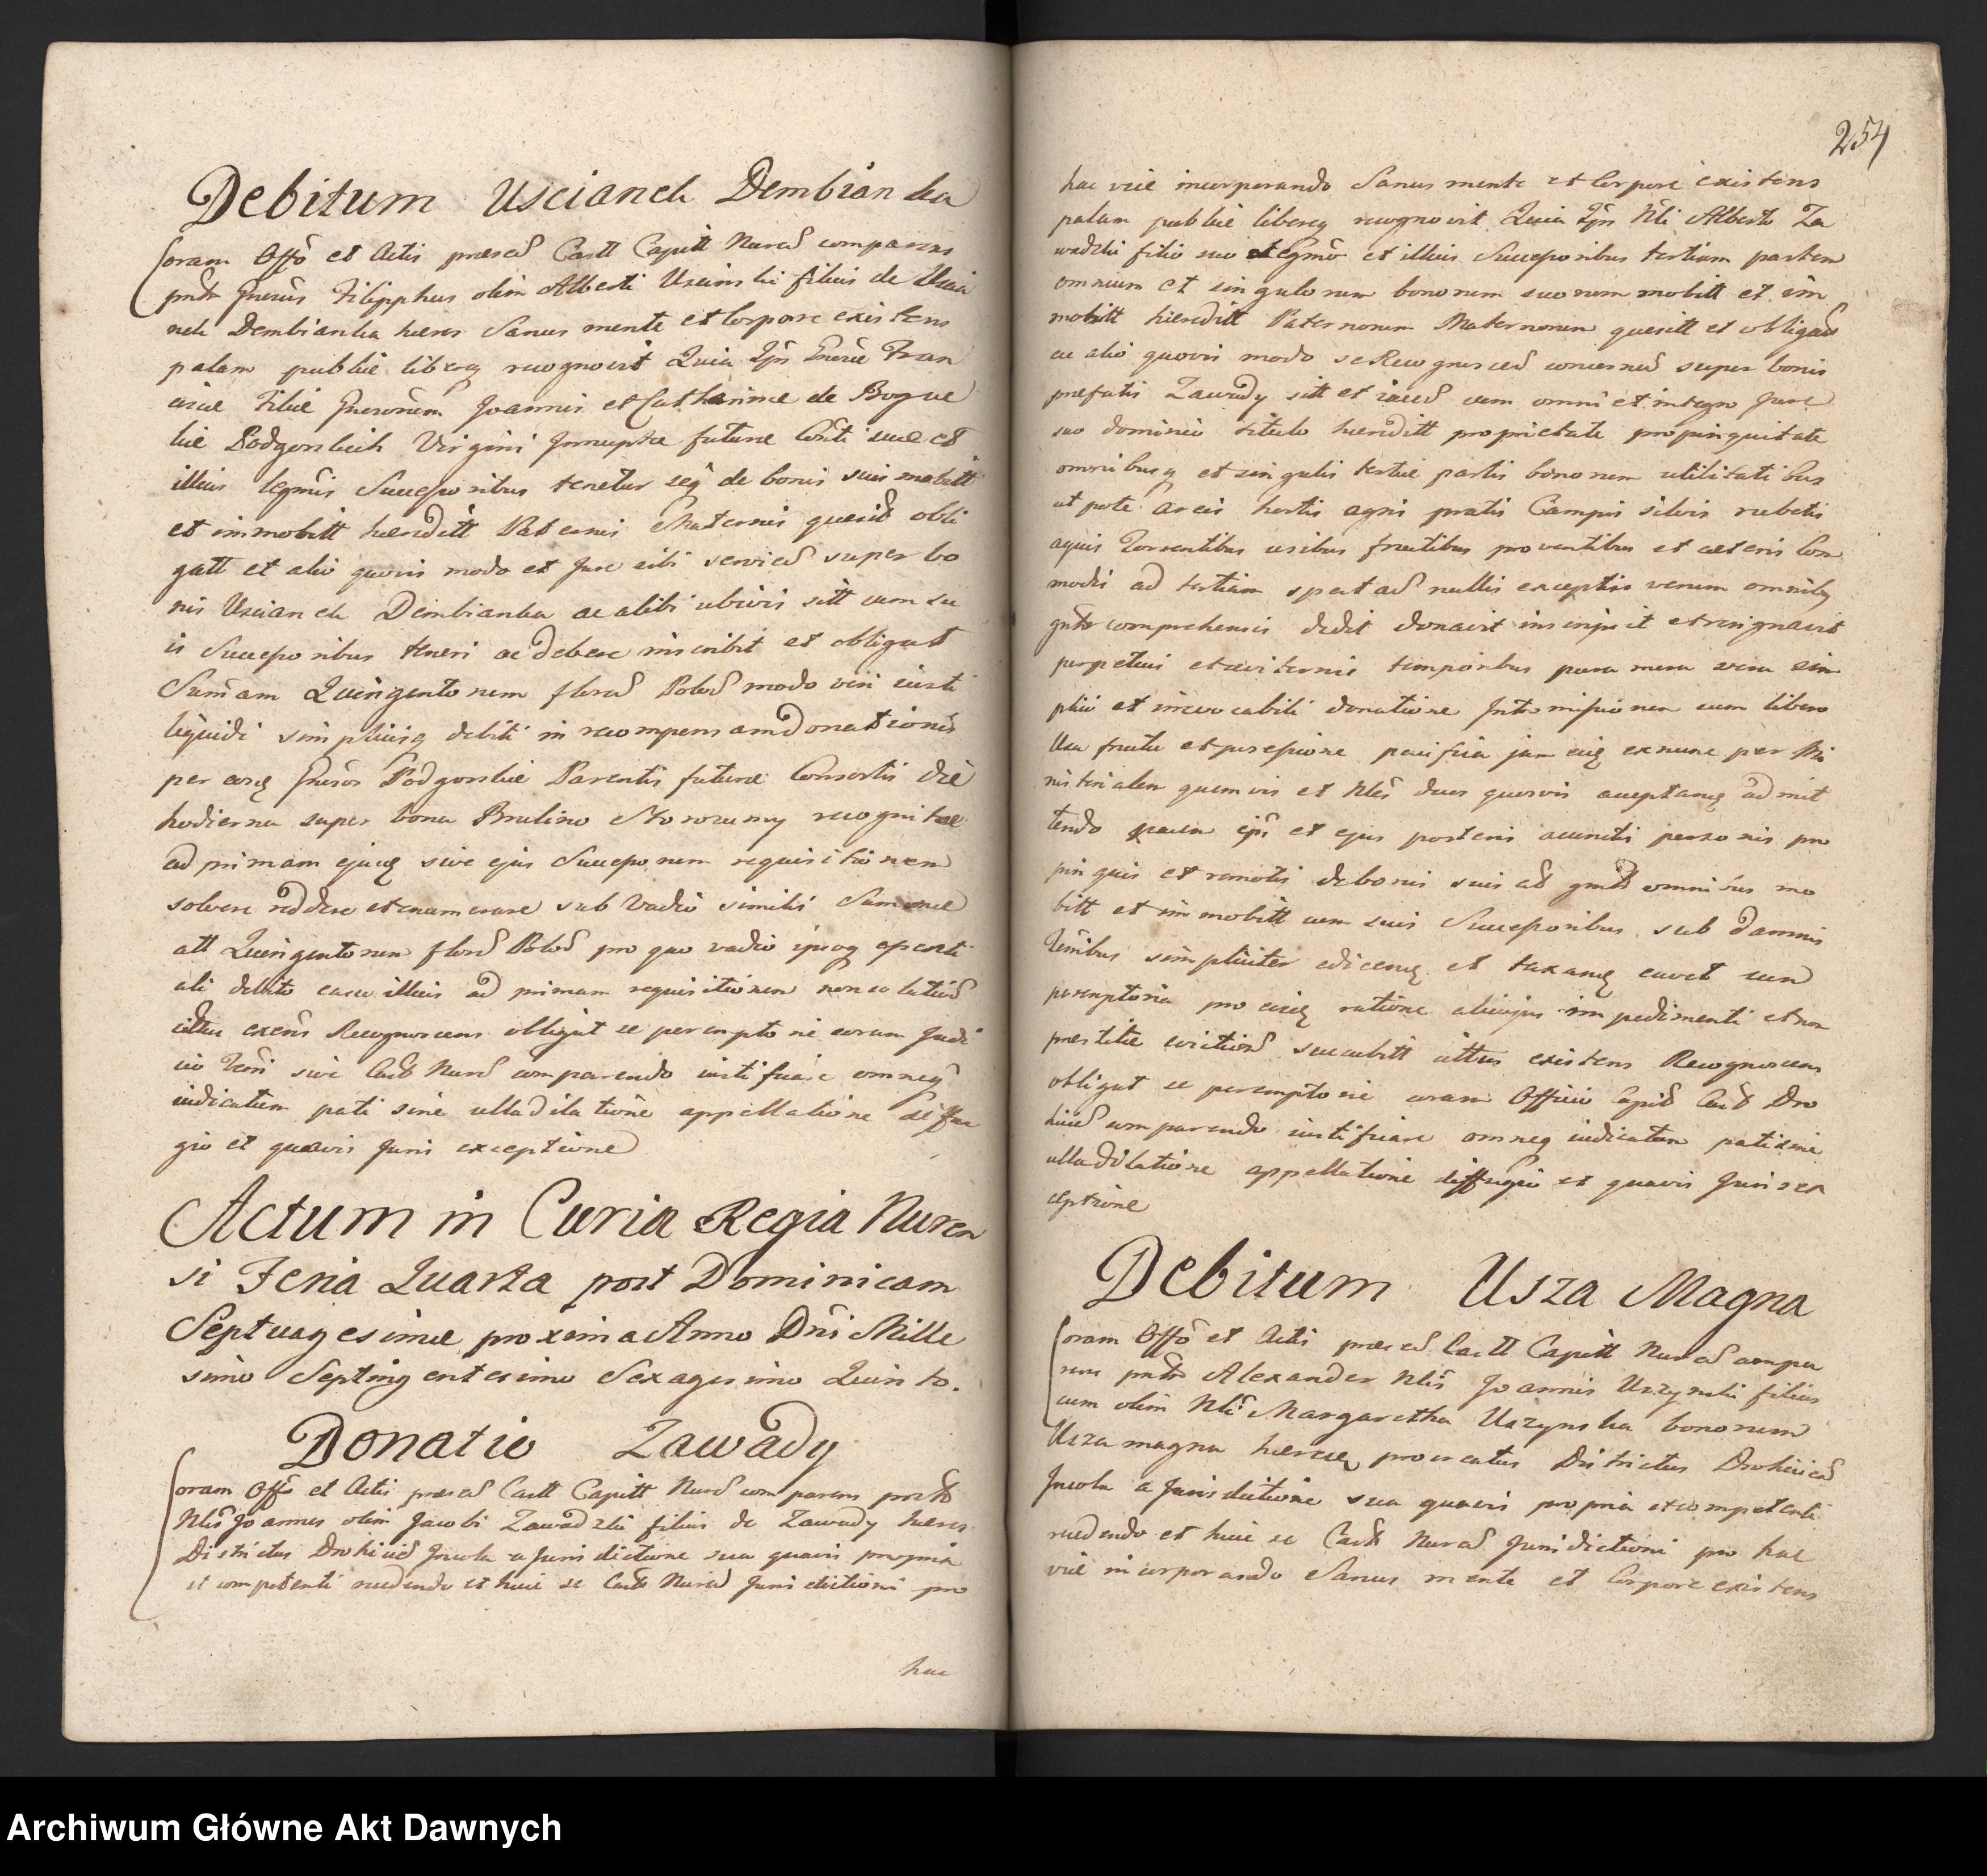 Debitum Uscianek Dembianka
Coram Offo et Actis præsed Castt Capitt Nured comparens
pntr Gnerūs Filipphus olim Alberti Uscinski filius de Uscia
nek Dembianka hæres Sanus mente et Corpore existens
palam publice libereq recognovit Quia Ipse Gneræ Fran
ciscæ Filiæ Gnerorum Joannis et Catharinæ de Bogue
kie Podgorskich Virgini Innuptæ futuræ Conti suæ et
illius legmis Successoribus tenetur seq de bonis suis mobitt
et immobitt hæreditt Paternis Maternis quesid obli
gatt et alio quovis modo et Jure sibi servied super bo
nis Uscianek Dembianka ac alibi ubivis sitt cum su
is Successoribus teneri ac debere inscribit et obligat
Sumam Quingentorum flored Polod modo veri iusti
liquidi simplicisq debiti in recompensam donationis
per eosq Gneros Podgorskie Parentes futuræ Consortis die
hodierna super bona Brulino recognitæ
ad primam ejusq sive ejus Successorum requisitionem
solvere reddere et enumerare sub Vadio similis Summæ
att Quingentorum flord Polod pro quo vadio ipsoq essenti
ali debito casu illius ad primam requisitionem non solutiod
cittus exens Recognoscens obligat se peremptorie coram Judi
cio Terri sive Castr Nured comparendo iustificare omneq
iudicatum pati sine ulla dilatione appellatione diffu
gio et quavis Juris exceptione
Actum in Curia Regia Nuren
si Feria Quarta post Dominicam
Septuagesimæ proxima Anno Dni Mille
simo Septingentesimo Sexagesimo Quinto.
Donatio Zawady
Coram Offo et Actis præsed Castt Capitt Nured comparens pntr
Nblis Joannes olim Jacobi Zawadzki filius de Zawady hæres
Districtus Drohiced Incola a Jurisdictione sua quavis propria
et competenti recedendo et huic se Castr Nured Jurisdictioni pro
hac
254
hac vice incorporando Sanus mente et Corpore existens
palam publice libereq recognovit Quia Ipse Nbli Alberto Za
wadzki filio suo et legmo et illius Successoribus tertiam partem
omnium et singulorum bonorum suorum mobitt et im
mobitt hæreditt Paternorum Maternorum quesitt et obligad
ac alio quovis modo se Recognosced concerned super bonis
prefatis Zawady sitt et iaced cum omni et integro Jure
suo dominio titulo hæreditt proprietate propinquitate
omnibusq et singulis tertiæ partis bonorum utilitatibus
ut pote areis hortis agris pratis Campis silvis rubetis
aquis Torrentibus usibus fructibus proventibus et cæteris Com
modis ad tertiam spectad nullis exceptis verum omnibq
gntr comprehensis dedit donavit inscripsit et resignavit
perpetuis et æviternis temporibus pura mera vera sim
plici et irrevocabili donatione Intromissionem cum libero
Usu fructu et possessione pacifica jam eiq exnunc per Mi
nisterialem quemvis et Nbles duos quosvis acceptanq admit
tendo ipse et ejus posteris acunctis personis pro
pinquis et remotis de bonis suis ad gntr omnibus mo
bitt et immobitt cum suis Successoribus sub damnis
Terris simpliciter edicenq et taxanq cavet cum
peremptoria pro eisq ratione alicujus impedimenti et non
præstitæ evictiod succubitt cittus existens Recognoscens
obligat se peremptorie coram Officio Capitt Castr Dro
hiced comparendo iustificare omneq iudicatum pati sine
ulla dilatione appellatione diffugio et quavis Juris ex
ceptione
Debitum Usza Magna
Coram Offo et Actis præsed Castt Capitt Nured compa
rens pntr Alexander Nblis Joannis Uszynski filius
cum olim Nbli Margaretha Uszynska bonorum
Usza magna hæredeq procreatus Districtus Drohiced
Incola a Jurisdictione sua quavis propria et competenti
recedendo et huic se Castr Nured Jurisdictioni pro hac
vice incorporando Sanus mente et Corpore existens
Archiwum Główne Akt Dawnych